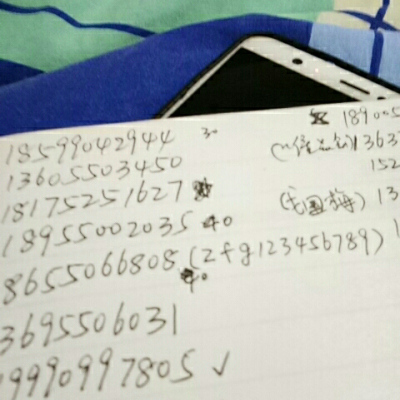 18599042944 30
13605503450
18175251627
18955002035 40
8655066808 (zfg123456789)
40
3695506031
19990997805 ✓
189005
1363
152
13